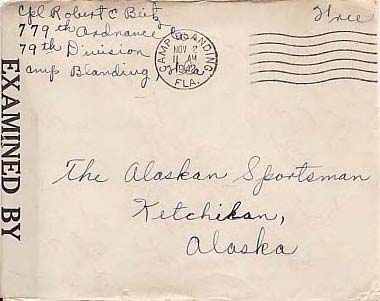 Cpl Robert C Bietz
779th Ordnance Co
79th Division
Camp Blanding, Fla
Free
CAMP BLANDING
NOV 2
11 AM
1942
FLA.
EXAMINED BY
The Alaskan Sportsman
Ketchikan,
Alaska